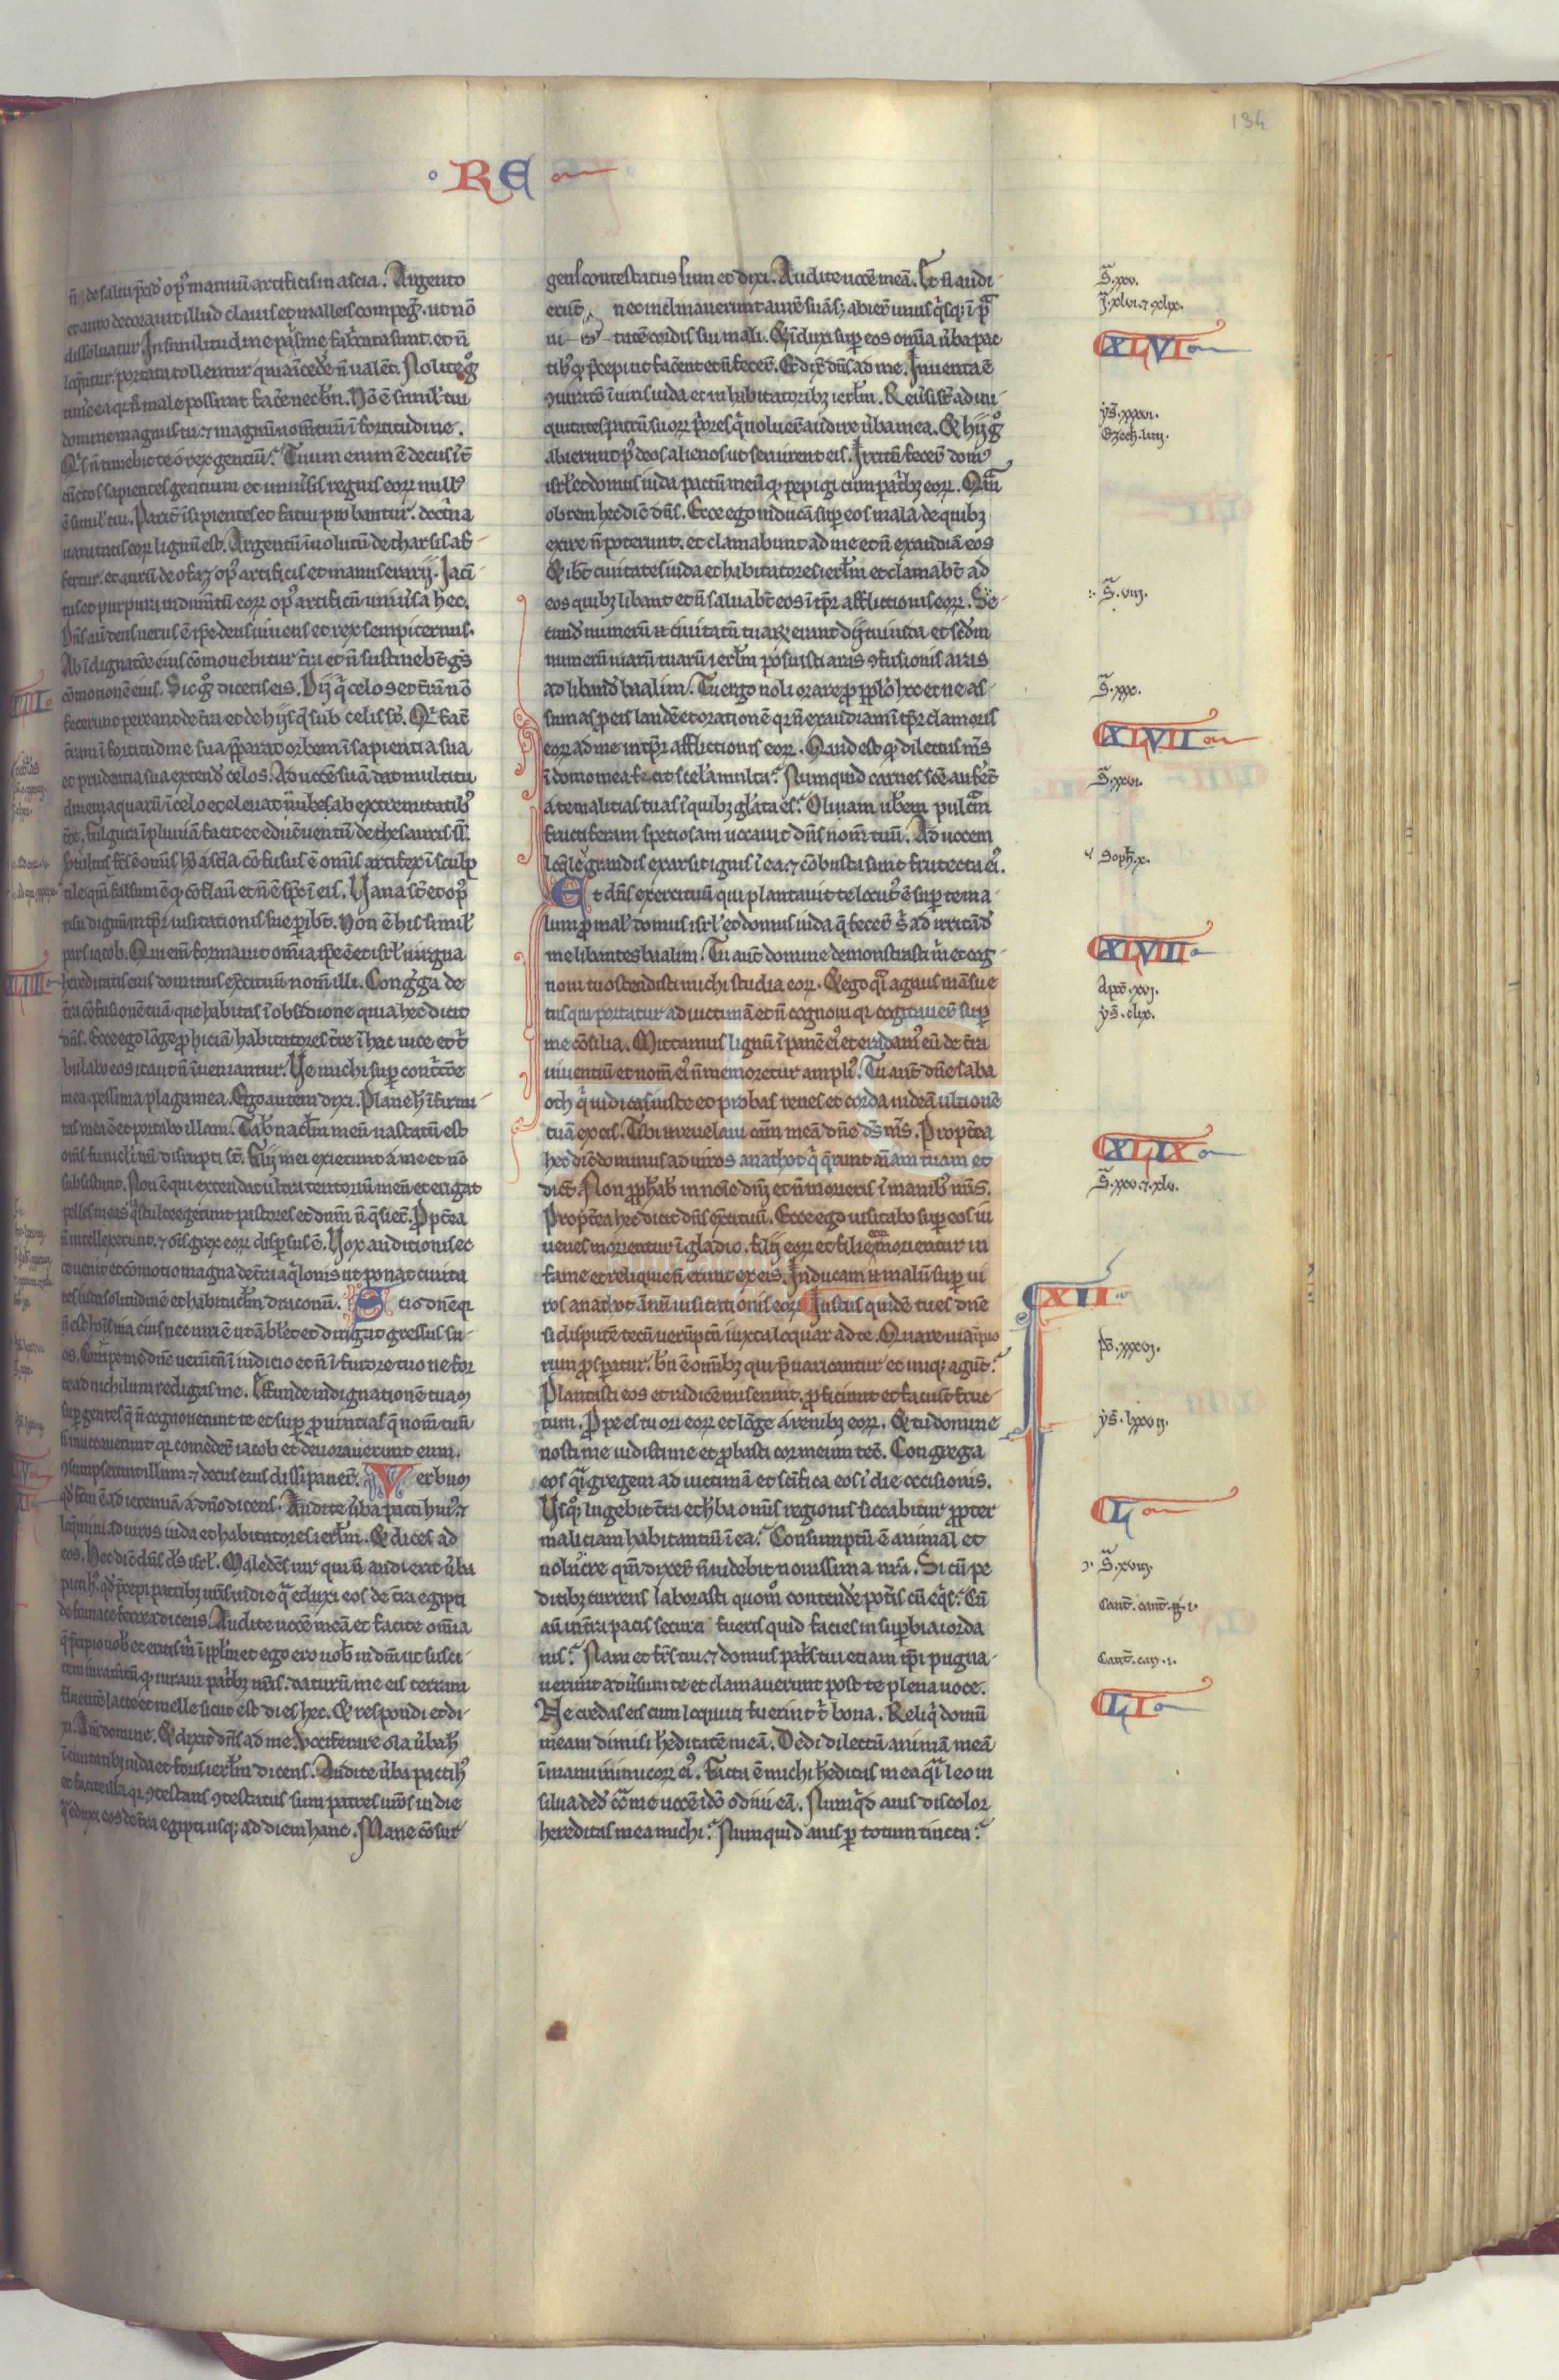 134
RE
n̄ de saltu p̄cid' op' manuū artificis in ascia. Argento
et auro decorauit illud clauis et malleis compeg̅. ut nō
dissoluatur. In similitudinē pal̄me fab̄cata sunt. et n̄
loq̄ntur. portata tollentur quia īced'e n̄ ualēt. Nolite g̊
timē ea q̄ n̄ male possunt facē nec bn̄. Nō ē simil' tui
domine magnus tu. ⁊ magnū nom̄ tuū ī fortitudine.
Q's n̄ timebit te ó rex gentiū? Tuum enim ē decus īt̄
cūctos sapientes gentium et in uniūsis regnis eoꝝ null'
ē simil' tui. Parit̄ īsipientes et fatui probantur. doct̄na
uanitatis eoꝝ lignū est. Argentū īuolutū de tharsis af-
fertur. et aurū de ofaz op' artificis et manus erarij. Iacī-
tus et purpura indum̄tū eoꝝ op' artificū uniūsa hec.
Dn̄s aū deus uerus ē ip̄e deus uiuens et rex sempiternus.
Ab īdignatōe eius cōmouebitur t̄ra et n̄ sustinebūt gn̄s
cōmotionē eius. Sic g̊ dicetis eis. Dij q̄ celos et t̄rā nō
fecerunt pereant de t̄ra et de hijs q̄ sub celis st̄. Q' facit
t̄ram ī fortitudine sua p̄parat orbem ī sapientia sua
et prudentia sua extendit celos. Ad uocē suā dat multitu
dinem aquarū ī celo et eleuat nubes ab extremitatib'
t̄re. fulgura ī pluuiā facit et educit uentū de thesauris s.
Stultus fc̄s ē om̄is hō a sc̄ia cōfusus ē om̄is artifex ī sculp
tile qm̄ falsum ē q̄ cōflauit et n̄ ē sp̄c ī eis. Uana sūt et op'
risu dignū in tp̄r uisitationis sue p̄ibūt. Non ē his simil'
pars iacob. Qui em̄ formauit om̄ia ip̄e ē et isrl' uirga
hereditatis eius dominus ex̄cituū nom̄ illi. Congrega de
t̄ra cōfusionē tuā que habitas ī obsidione quia hec dicit
dn̄s. Ecce ego lōge p̄hiciā habitatores t̄re ī hac uice et t̄
bulabo eos ita ut n̄ īueniantur. Ue michi sup̄ cont̄tōe
mea. pessima plaga mea. Ego autem dixi. Plane h̄ īfirmi-
tas mea ē et portabo illam. Tab̄nac̄lm meū uastatū est
om̄s funiculi m̄i disrupti st̄. filij mei exierunt a me et nō
subsistunt. Non ē qui extendat ultra tentoriū meū et erigat
pelles meas q̄ stulte egerunt pastores et dnm̄ n̄ q̄sier̄t. P̄pt̄ea
n̄ intellexerunt. ⁊ om̄is grex eoꝝ disp̄sus ē. Uox auditionis ec
ce uenit et cōmotio magna de t̄ra aq̄lonis ut ponat ciuita
tes iuda solitudinē et habitac̄lm draconū. Scio dn̄e q̄
n̄ est hoīs uia eius nec uiri ē ut āblet et dirigat gressus su-
os. Corripe me dn̄e ueruntn̄ ī iudicio et n̄ ī furore tuo ne for
te ad nichilum redigas me. Effunde indignationē tuam
sup̄ gentes q̄ n̄ cognouerunt te et sup̄ prouintias q̄ nom̄ tuū
n̄ inuocauerunt q̄ comederūt iacob et deuorauerunt eum.
ꝯsumpserunt illum. ⁊ decus eius dissipauer̄t. Verbum
qd̄ fcm̄ ē ad ieremiā a dn̄o dicens. Audite ūba pacti hui'. ⁊
loq̄mini ad uiros iuda et habitatores ierl̄m. Et dices ad
eos. Hec dic̄ dn̄s d's isrl'. Maledc̄s uir qui n̄ audierit ūba
pacti h' qd̄ p̄cepi patribꝫ ur̄is in die q̄ eduxi eos de t̄ra egipti
de fornace ferrea dicens. Audite uocē meā et facite om̄ia
q̄ p̄cipio uob' et eritis m̄ ī pp̄lm et ego ero uob' in dm̄ ut susci-
tem iuram̄tū q̄ iuraui patribꝫ ur̄is. daturū me eis terram
fluentē lacte et melle sicut est dies hec. Et respondi et di-
xi. Am̄ domine. Et dixit dn̄s ad me. Uociferare oīa ūba h'
ī ciuitatibꝫ iuda et foris ierl̄m dicens. Audite ūba pacti h'
et facite illa q̄ ꝯtestans ꝯtestatus sum patres ur̄os in die
q̄ eduxi eos de t̄ra egipti usqꝫ ad diem hanc. Mane cōsur
gens contestatus sum et dixi. Audite uocē meā. Et n̄ audi-
erūt nec inclinauerunt aurē suā sꝫ abierūt unusq̄sqꝫ ī p̄
ui- tatē cordis sui mali. Et īduxi sup̄ eos om̄ia ūba pac
ti h' q̄ p̄cepi ut facēent et n̄ fecer̄t. Et dix̄ dn̄s ad me. Inuenta ē
ꝯiuratō ī uiris iuda et in habitatoribꝫ ierl̄m. Reūsi st̄ ad ini-
quitates patrū suoꝝ p̄ores q̄ noluer̄t audire ūba mea. Et hij g̊
abierunt p̄ deos alienos ut seruirent eis. Irritū fecer̄t dom'
isrl' et domus iuda pactū meū q̄ pepigi cum patribꝫ eoꝝ. Qm̄
ob rem hec dic̄ dn̄s. Ecce ego inducā sup̄ eos mala de quibꝫ
exire n̄ poterunt. et clamabunt ad me et n̄ exaudiā eos
Et ibūt ciuitates iuda et habitatores ierl̄m et clamabūt ad
eos quibꝫ libant et n̄ saluabūt eos ī tp̄r afflictionis eoꝝ. Se
cund' numerū ciuitatū tuaꝝ erant dij tui iuda et scd̄m
numerū uiarū tuarū ierl̄m posuisti aras ꝯfusionis aras
ad liband' baalim. Tu ergo noli orare p̄ pp̄lo hoc et ne as-
sumas p̄ eis laudē et orationē q̄ n̄ exaudiam ī tp̄r clamoris
eoꝝ ad me in tp̄r afflictionis eoꝝ. Quid est q̄ dilectus m̄s
ī domo mea fecit scel'a multa? Numquid carnes sc̄e aufer̄t
a te malitias tuas ī quibꝫ gl̄ata es? Oliuam ub̄em pulcā
fructiferam spetiosam uocauit dn̄s nom̄ tuū. Ad uocem
loq̄le grandis exarsit ignis ī ea. ⁊ cōbusta sunt frutecta ei'.
Et dn̄s exercituū qui plantauit te locut' ē sup̄ te ma-
lum p̄ mal' domus isrl' et domus iuda q̄ fecer̄t s' ad irritād'
me libantes baalim. Tu aut̄ domine demonstrasti m̄ et cog-
noui tu ostendisti michi studia eoꝝ. Et ego q̄i agnus māsue
tus qui portatur ad uictimā et n̄ cognoui q̄ cogitauer̄t sup̄
me cōsilia. Mittamus lignū ī panē ei' et eradam' eū de t̄ra
uiuentiū et nom̄ ei' n̄ memoretur ampli'. Tu aut̄ dn̄e saba
oth q̄ iudicas iuste et probas renes et corda uideā ultionē
tuā ex eis. Tibi .n. reuelaui cām meā dn̄e d's m̄s. Propt̄ea
hec dic̄ dominus ad uiros anathot q̄ q̄runt aīam tuam et
dicūt. Non pp̄hab' in noīe dn̄i et n̄ morieris ī manib' nr̄is.
Propt̄ea hec dicit dn̄s ex̄cituū. Ecce ego uisitabo sup̄ eos iu
uenes morientur ī gladio. filij eoꝝ et filie morientur in
fame et reliquie n̄ erunt ex eis. Inducam .n. malū sup̄ ui
ros anathot ānū uisitationis eoꝝ. Iustus quidē tu es dn̄e
si disputē tecū uerūptn̄ iuxta loquar ad te. Quare uia īpio
rum p̄sp̄atur. bn̄ ē omībꝫ qui p̄uaricantur et iniq; agūt?
Plantasti eos et radicē miserunt. p̄ficiunt et faciūt fruc-
tum. P̄pe es tu ori eoꝝ et lōge a renibꝫ eoꝝ. Et tu domine
nosti me uidisti me et p̄basti cor meum tecū. Congrega
eos q̄i gregem ad uictimā et sc̄ifica eos ī die occisionis.
Usq̊ lugebit t̄ra et h̄ba om̄is regionis siccabitur p̄pter
maliciam habitantiū ī ea? Consumptū ē animal et
uolucre qm̄ dixer̄t n̄ uidebit nouissima nr̄a. Si cū pe
ditibꝫ currens laborasti quom̊ contend'e pot̄is cū eq̄s? Cū
aū in t̄ra pacis secura fueris quid facies in sup̄bia iorda
nis? Nam et fr̄s tui. ⁊ domus pat̄s tui etiam ip̄i pugna-
uerunt adūsum te et clamauerunt post te plena uoce.
Ne credas eis cum locuti fuerint t̄ bona. Reliq̄ domū
meam dimisi h̄editatē meā. Dedi dilectā animā meā
ī manu inimicoꝝ ei'. Facta ē michi h̄editas mea q̄i leo in
silua ded' cōtra me uocē idō odiui eā. Numq̄d auis discolor
hereditas mea michi? Numquid auis p̄ totum tincta?
S̄. xv.
J̄. xlvi. ⁊ xlix.
XLVI
ys̄. xxxvi.
Ezech. liij.
S̄. viij.
S̄. xxx.
XLVII
S̄. xxvi.
Soph̄. x.
XLVIII
Apoc̄. xvj.
ys̄. clix.
XLIX
S̄. xv. ⁊ xlv.
XII
ps̄. xxxvj.
ys̄. lxxvij.
L
S̄. xviij.
Cant̄. cant̄. g. i.
Cant̄. can. i.
LI